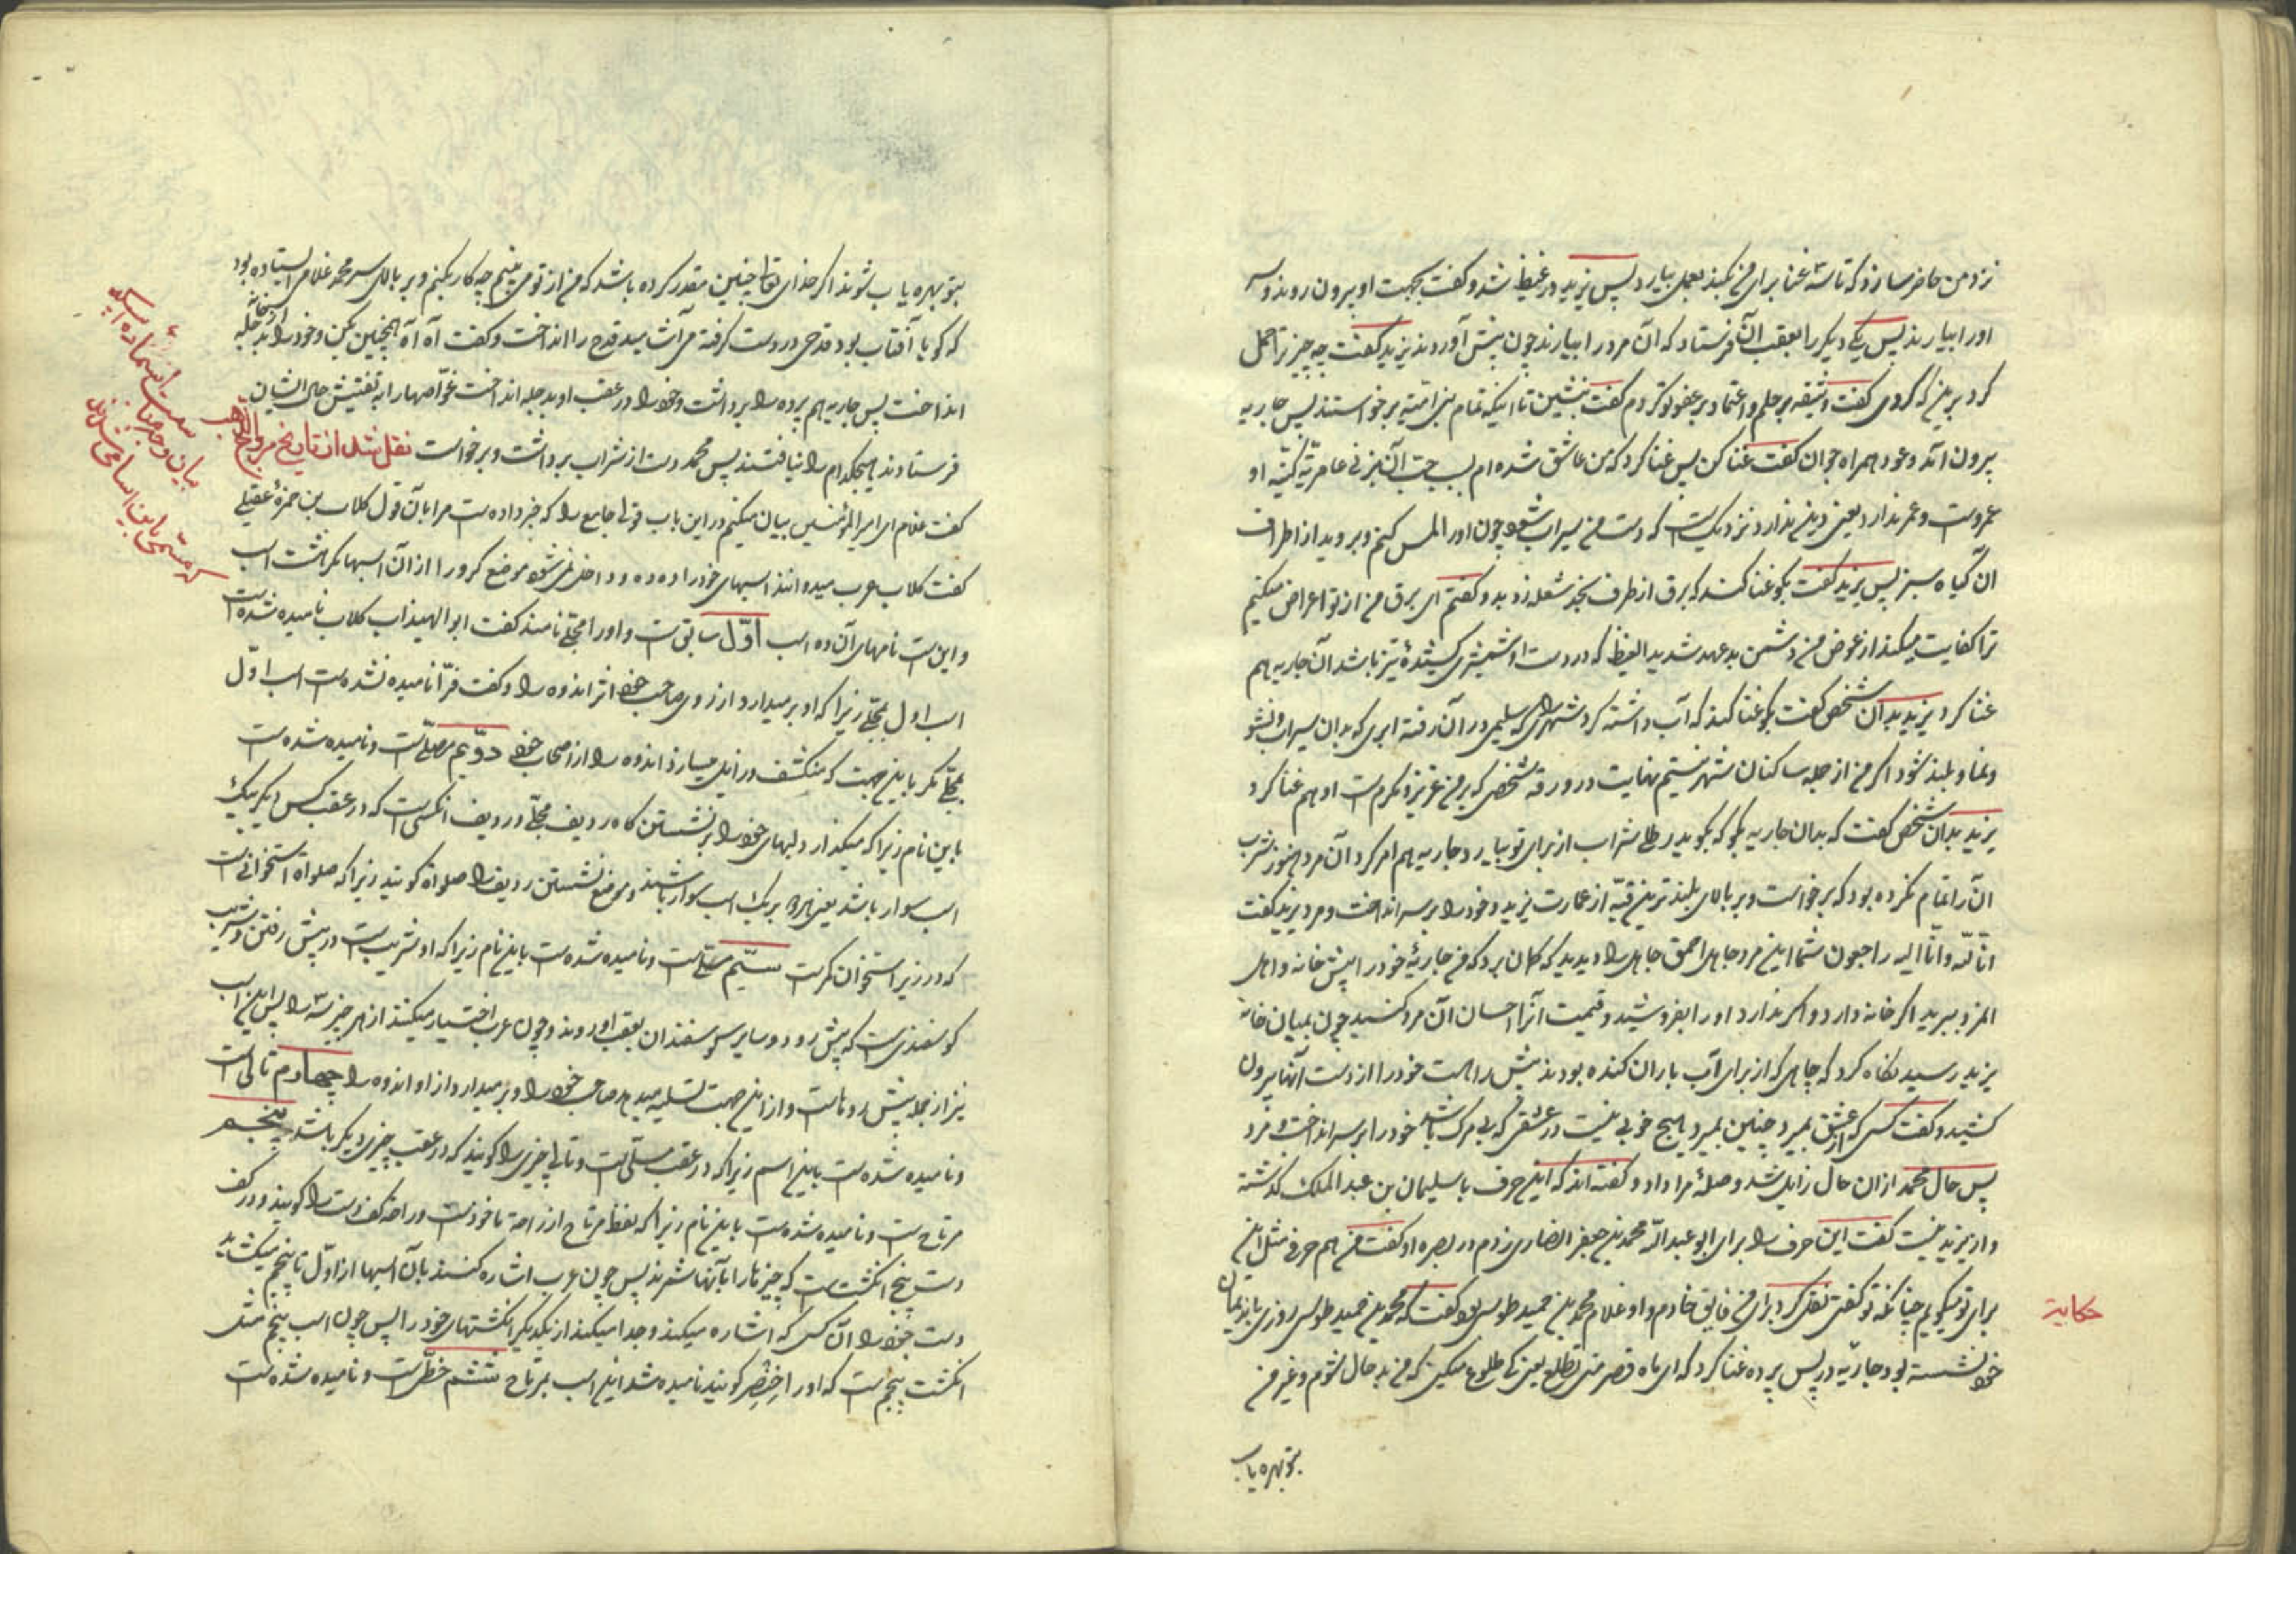 نزد من حاضر سازد که تا سه غنا برای من بکند بعمل بیارد پس یزید در غیظ شد و گفت بجهت او بیرون روند و سر
اورا بیارند پس یکی دیگر را بعقب آن فرستاد که آن مرد را بیارند چون پیش آوردند یزید گفت چه چیز ترا حمل
کرد برین که کردی گفت وثیقه بر حلم و اعتماد بر عفو تو کردم گفت بنشین تا اینکه تمام بنی امیه برخواستند پس جاریه
بیرون آمد و عود همراه جوان گفت غنا کن پس غنا کرد که من عاشق شده ام بسبب حب آن بزنی عامریه کنیه او
عمروست و عمر ندارد یعنی دین ندارد نزدیکست که دست من سیراب شود چون اورا لمس کنم و بروید از اطراف
ان گیاه سبز پس یزید گفت بگو غنا کند که برق از طرف نجد شعله زد بدو گفتم ای برق من از تو اعراض میکنم
ترا کفایت میکند از عوض من دشمن بدعهد شدید الغیظ که در دست او شمشیری کشندهٔ تیز باشد آن جاریه هم
غنا کرد یزید بدان شخص گفت بگو غنا کند که آب داشته کرد شهرهای که سلیمی در آن رفته ابری که بدان سیراب شود
و نما و بلند شود اگر من از جمله ساکنان شهر نیستم نهایت درو رفته شخصی که بر من عزیز و مکرمست او هم غنا کرد
یزید بدان شخص گفت که بدان جاریه بگو که بگوید رطلی شراب از برای تو بیارد جاریه هم امر کرد آن مرد هنوز شرب
آنرا تمام نکرده بود که برخواست و بر بالای بلندترین قبه از عمارت یزید و خود را بر سر انداخت و مرد یزید گفت
انا لله و انا الیه راجعون شما این مرد جاهل احمق جاهل را دیدید که گمان برد که من جاریهٔ خود را پیش خانه و اهل
المزد ببرید اگر خانه دارد و اگر ندارد اورا بفروشید و قیمت آنرا احسان آن مرد کنید چون بمیان خانه
یزید رسید نگاه کرد که چاهی که از برای آب باران کنده بودند پیش راهست خود را از دست آنها بیرون
کشید و گفت کسی که از عشق بمیرد چنین بمیرد و هیچ خوبی نیست در عشقی که بی مرگ باشد خود را بر سر انداخت و مرد
پس حال محمد ازان حال زایل شد و صلهٔ مرا داد و گفته اند که این حرف با سلیمان بن عبد الملک گذشته
و از یزید نیست گفت این حرف را برای ابو عبد الله محمد بن جعفر انصاری زدم در بصره او گفت من هم حرفی مثل این
برای تو میگویم چنانکه تو گفتی نقل کرد برای من فایق خادم و او غلام محمد بن حمید طوسی بود گفت که محمد بن حمید طوسی روزی با ندیمان
خود نشسته بود جاریه در پس پرده غنا کرد که ای ماه قصر متی تطلع یعنی کی طلوع میکنی که من بد حال شوم و غیر من
بتو بهره یاب
حکایة
بتو بهره یاب شوند اگر خدای تعالی چنین مقدر کرده باشد که من از تو می بینم چه کار بکنم و بر بالای سر محمد غلامی ایستاده بود
که گویا آفتاب بود قدحی در دست گرفته می آشامید قدح را انداخت و گفت آه آه همچنین بکن و خود را بدجله
انداخت پس جاریه هم پرده را برداشت و خود را در عقب او بدجله انداخت غواصها را به تفتیش حال ایشان
فرستادند هیچکدام را نیافتند پس محمد دست از شراب برداشت و برخواست نقل شد از تاریخ مروج الذهب
گفت غلام ای امیر المؤمنین بیان میکنم در این باب قولی جامع را که خبر داده ست مرا بآن قول کلاب بن حمزهٔ عقیلی
گفت کلاب عرب میدوانند اسبهای خود را ده ده و داخل نمی شود موضع گرو را از آن اسبها مگر هشت اسب
و این ست نامهای آن ده اسب اول سابق ست و اورا مجلی نامند گفت ابو الهیذاب کلاب نامیده شده ست
اسب اول مجلی زیرا که او بر میدارد از روی صاحب خود اثر اندوه را و گفت فرا نامیده نشده ست اسب اول
مجلی مگر باین جهت که منکشف و زایل میسازد اندوه را از اصحاب خود دوّیم مصلّی ست و نامیده شده ست
باین نام زیرا که میگذارد لبهای خود را بر نشستن گاه ردیف مجلّی و ردیف انکسی ست که در عقب کس دیگر بیک
اسب سوار باشد یعنی هردو بر یک اسب سوار باشند و موضع نشستن ردیف را صلوة گویند زیرا که صلواة استخوانی ست
که در زیر استخوان کمرست سیّم مسلّی ست و نامیده شده ست باین نام زیرا که او شریب ست در پیش رفتن و شریب
گوسفندی ست که پیش رود و سایر گوسفندان بعقب او روند و چون عرب اختیار میکنند از هر چیز سه را پس این اسب
نیز از جمله پیش روهاست و از این جهت تسلیه میدهد صاحب خود را و بر میدارد از او اندوه را چهارم تالی ست
و نامیده شده ست باین اسم زیرا که در عقب مسلّی ست و تالی چیزی را گویند که در عقب چیزی دیگر باشد پنجم
مرتاح ست و نامیده شده ست باین نام زیرا که لفظ مرتاح از راحة ماخوذست و راحة کف دست را گویند و در کف
دست پنج انگشت ست که چیزها را بآنها شمرند پس چون عرب اشاره کنند بآن اسبها از اول تا پنجم میگشاید
دست خود را آن کس که اشاره میکند و جدا میکند از یکدیگر انگشتهای خود را پس چون اسب پنجم مثل
انگشت پنجم ست که اورا خنصر گویند نامیده شد این اسب بمرتاح ششم حظی ست و نامیده شده ست
بیان وجه مناسبت اسماء ده اسپ
که مسمی باین اسامی شده اند